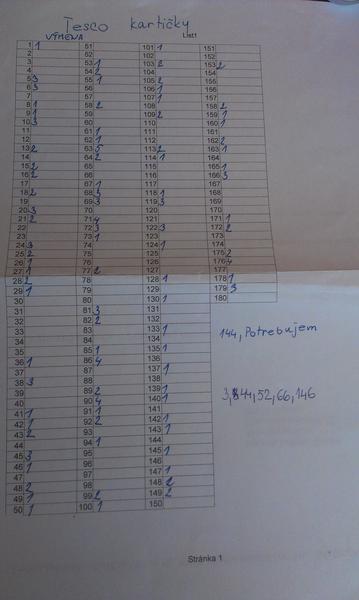 Tesco kartičky
VÝMENA List1
1 1 51 101 1 151
2 52 102 152
3 53 1 103 2 153 2
4 54 2 104 154
5 3 55 1 105 2 155
6 3 56 106 1 156
7 57 107 1 157
8 1 58 2 108 158 2
9 1 59 109 2 159 1
10 3 60 110 160 1
11 61 1 111 161
12 62 1 112 162 2
13 2 63 5 113 2 163 1
14 64 2 114 1 164
15 2 65 115 165 1
16 2 66 116 166 3
17 67 1 117 167
18 2 68 3 118 1 168
19 69 3 119 3 169
20 3 70 120 170
21 2 71 4 121 171 1
22 72 3 122 3 172 2
23 73 1 123 173
24 3 74 124 1 174
25 2 75 125 175 2
26 1 76 126 176 4
27 1 77 2 127 177
28 2 78 128 1 178 1
29 1 79 129 179 3
30 80 130 1 180
31 81 3 131
32 82 2 132
33 83 133 1 144, Potrebujem
34 84 134
35 85 1 135 1
36 1 86 4 136
37 87 137 1
38 3 88 138
39 89 2 139 1
40 90 4 140 1
41 1 91 1 141
42 1 92 2 142 1
43 2 93 143 1
44 94 1 144
45 3 95 145 1
46 1 96 146
47 97 147 1
48 2 98 148 2
49 1 99 2 149 2
50 1 100 1 150
52, 66, 146
Stránka 1